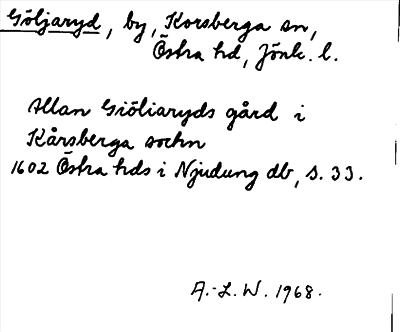 Göljaryd, by, Korsberga sn,
Östra hd, Jönk. l.
Allan Giöliaryds gård i
Kårsberga sochn
1602 Östra hds i Njudung db, s. 33.
A.-L. W. 1968.